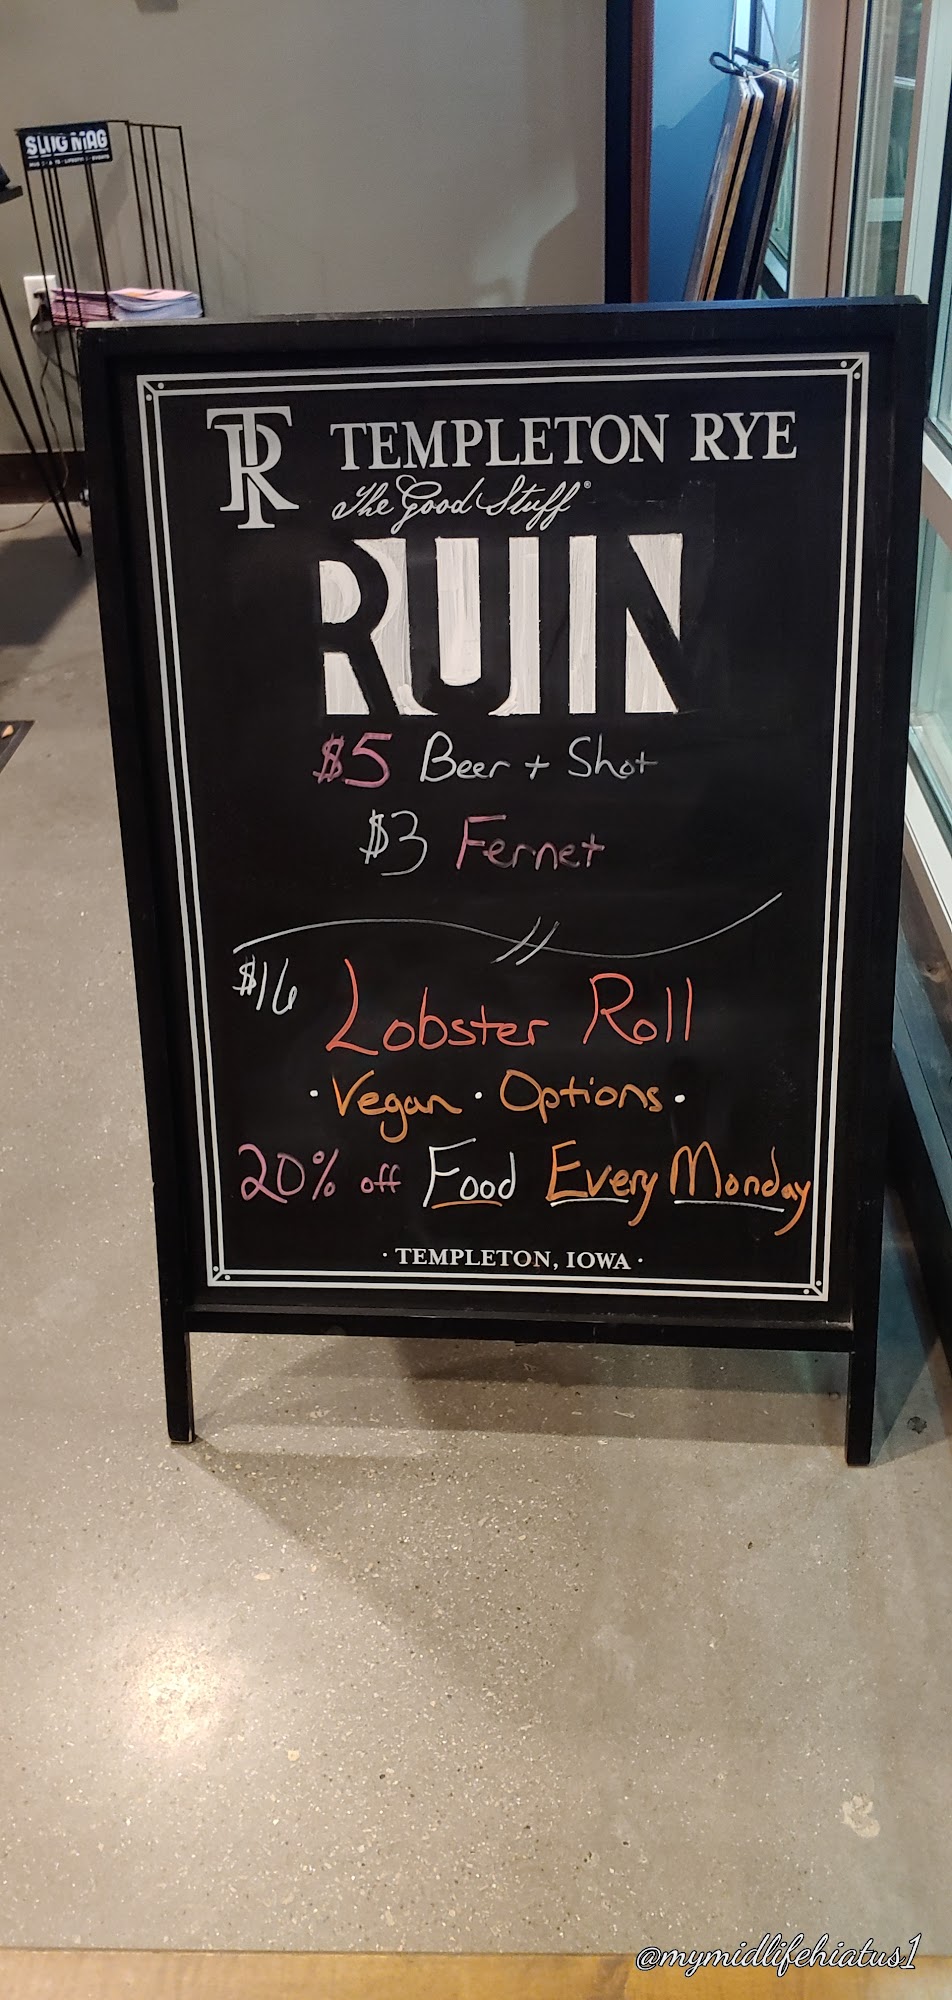 SLUG MAG
TR TEMPLETON RYE
The Good Stuff®
RUIN
$5 Beer + Shot
$3 Fernet
$16 Lobster Roll
· Vegan · Options ·
20% off Food Every Monday
· TEMPLETON, IOWA ·
@mymidlifehiatus1